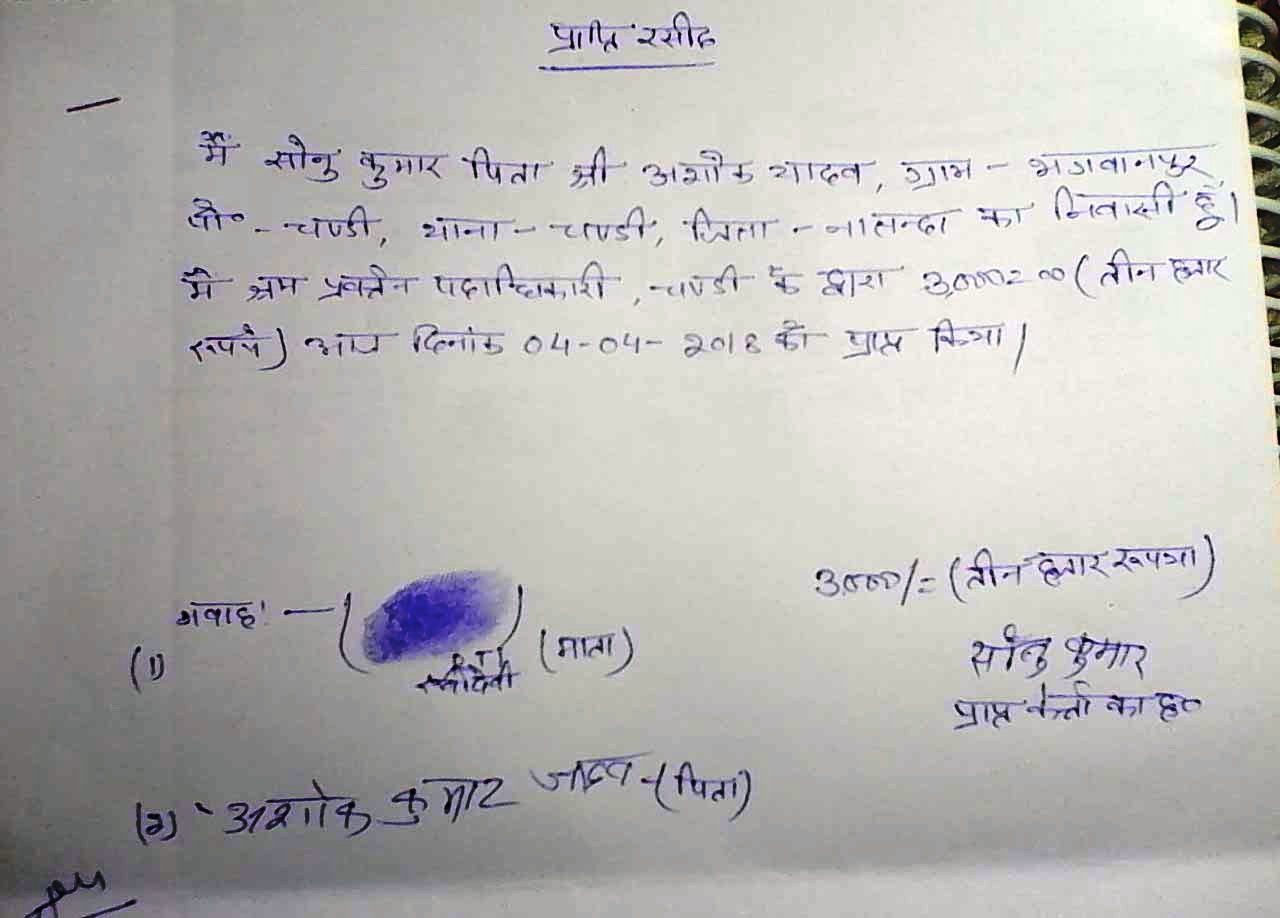 प्राप्ति रसीद
मैं सोनु कुमार पिता श्री अशोक यादव, ग्राम - भगवानपुर
पो० - चण्डी, थाना - चण्डी, जिला - नालन्दा का निवासी हूँ।
मैं श्रम प्रवर्तन पदाधिकारी, चण्डी के द्वारा 3,000=00 (तीन हजार
रूपये) आज दिनांक 04-04-2018 को प्राप्त किया।
3,000/= (तीन हजार रूपया)
गवाह: — ( )
(1) (माता)
सोनु कुमार
प्राप्त कर्ता का ह०
(2) - अशोक कुमार जादव - (पिता)